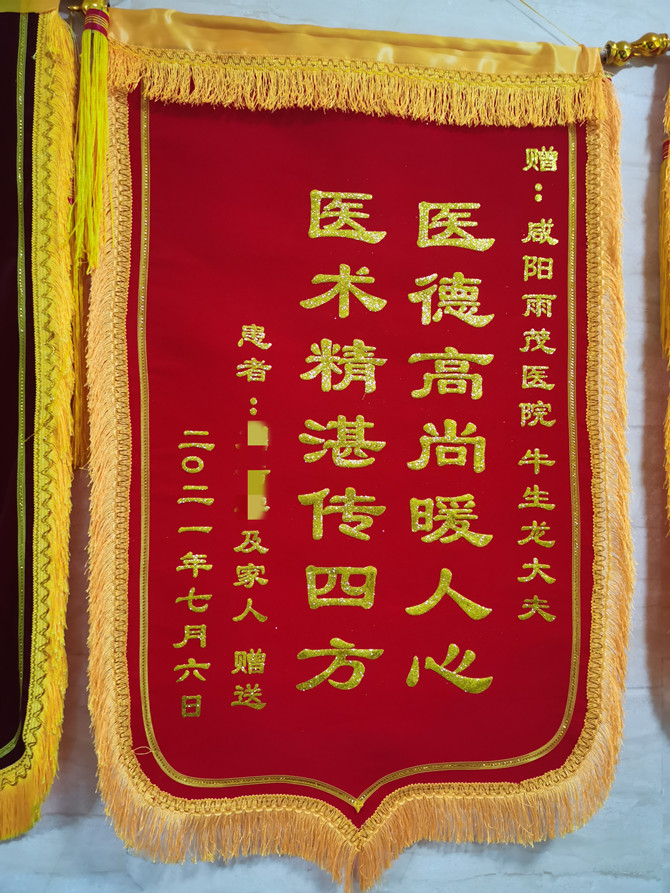 赠：咸阳雨茂医院 牛生龙大夫
医德高尚暖人心
医术精湛传四方
患者： 及家人 赠送
二〇二一年七月六日